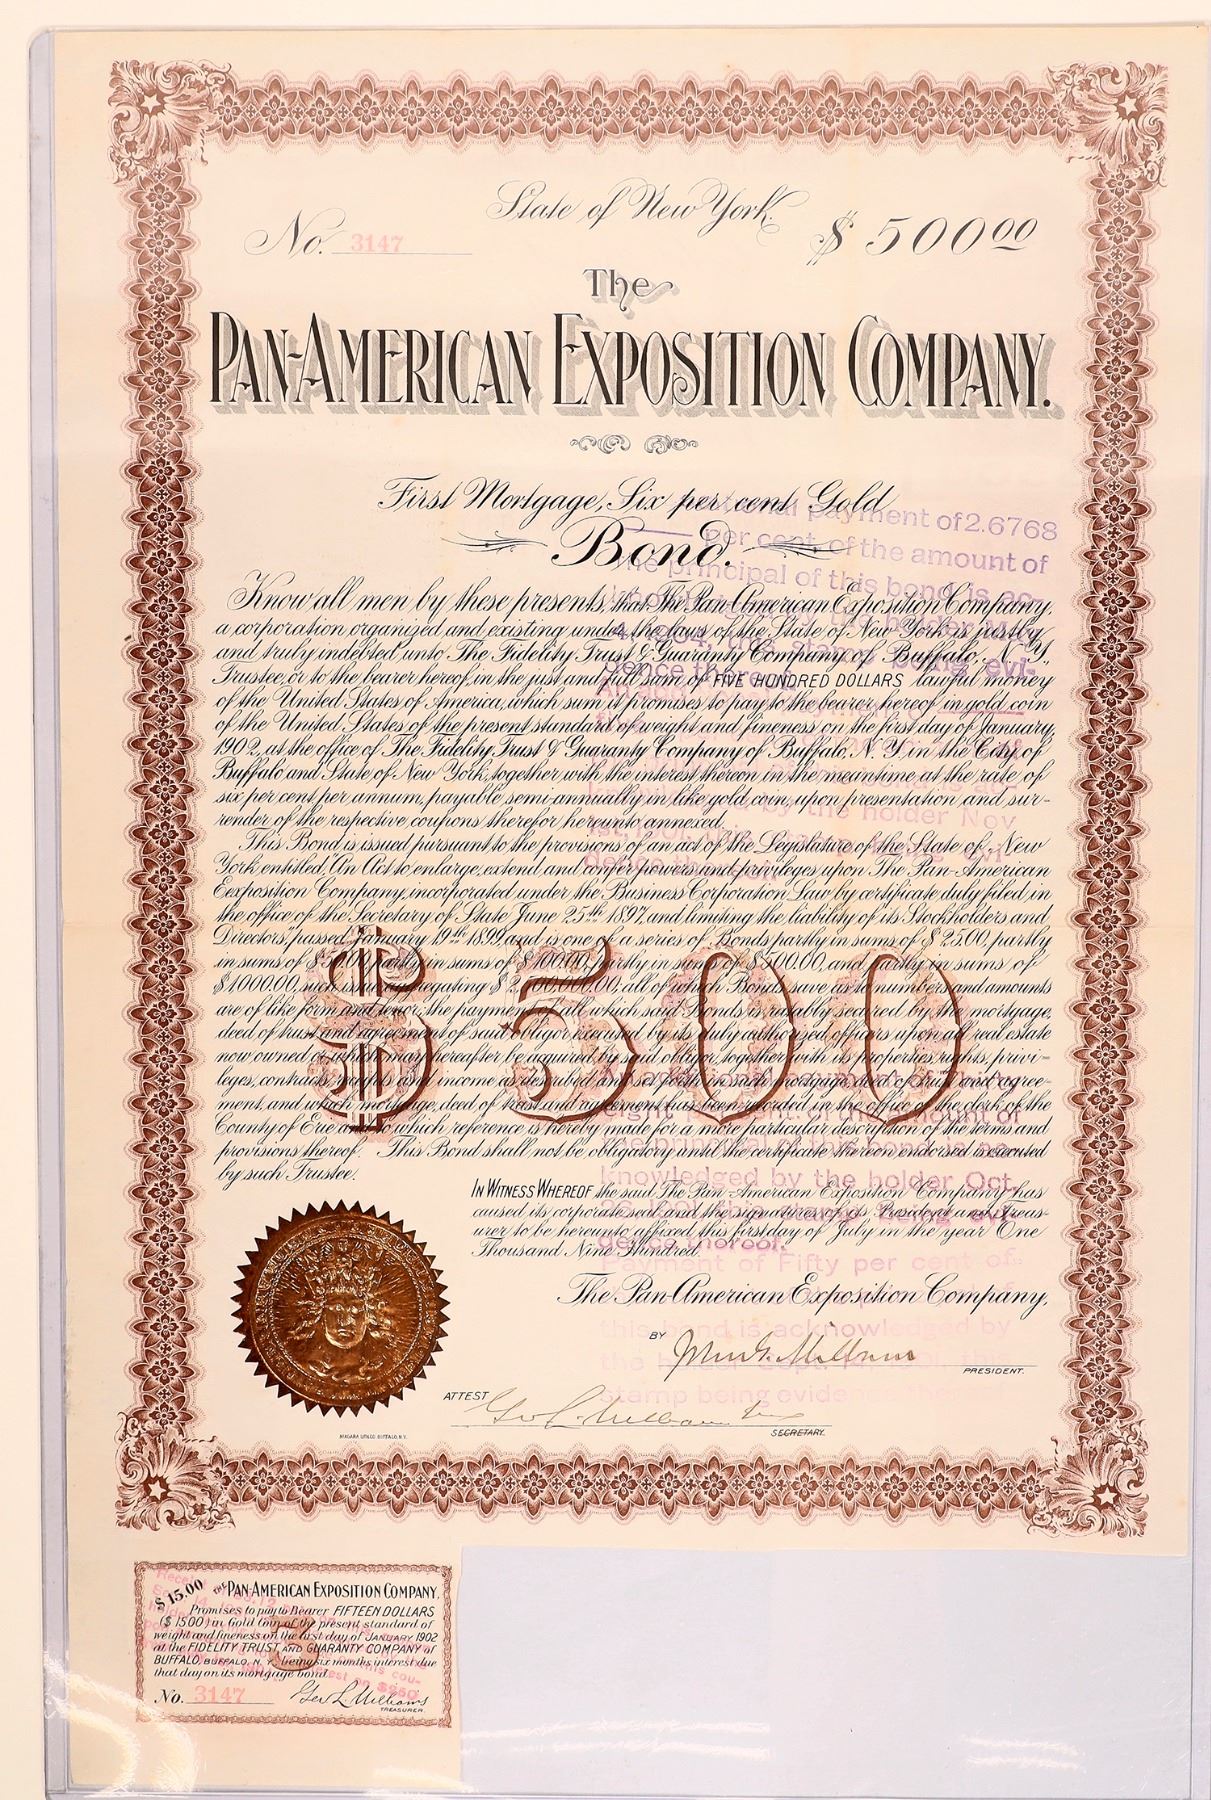 State of New York.
No. 3147
$ 500 00
The
PAN-AMERICAN EXPOSITION COMPANY.
First Mortgage, Six per cent Gold
Bond.
Know all men by these presents, that The Pan-American Exposition Company,
a corporation organized and existing under the laws of the State of New York is justly
and truly indebted unto The Fidelity Trust & Guaranty Company of Buffalo, N. Y.,
Trustee, or to the bearer hereof, in the just and full sum of FIVE HUNDRED DOLLARS lawful money
of the United States of America, which sum it promises to pay to the bearer hereof in gold coin
of the United States of the present standard of weight and fineness on the first day of January,
1902, at the office of The Fidelity Trust & Guaranty Company of Buffalo, N. Y. in the City of
Buffalo and State of New York, together with the interest thereon in the meantime, at the rate of
six per cent per annum, payable semi-annually in like gold coin, upon presentation and sur-
render of the respective coupons therefor hereunto annexed.
This Bond is issued pursuant to the provisions of an act of the Legislature of the State of New
York entitled, "An Act to enlarge, extend and confer powers and privileges upon The Pan-American
Eexposition Company, incorporated under the Business Corporation Law by certificate duly filed in
the office of the Secretary of State June 25th 1897, and limiting the liability of its Stockholders and
Directors," passed January 19th 1899, and is one of a series of Bonds partly in sums of $ 25.00, partly
in sums of $ 50.00, partly in sums of $ 100.00, partly in sums of $ 500.00, and partly in sums of
$ 1000.00, such issue aggregating $ 2,500,000.00, all of which Bonds save as to numbers and amounts
are of like form and tenor, the payment of all which said Bonds is ratably secured by the mortgage,
deed of trust and agreement of said obligor, executed by its duly authorized officers upon all real estate
now owned or which may hereafter be acquired by said obligor, together with its properties, rights, privi-
leges, contracts, and income as described and set forth in such mortgage deed of trust and agree-
ment, and which mortgage, deed of trust and agreement has been recorded in the office of the clerk of the
County of Erie and to which reference is hereby made for a more particular description of the terms and
provisions thereof. This Bond shall not be obligatory until the certificate thereon endorsed is executed
by such Trustee.
$ 500
IN WITNESS WHEREOF the said The Pan-American Exposition Company has
caused its corporate seal and the signatures of its President and Treas-
urer to be hereunto affixed this first day of July in the year One
Thousand Nine Hundred.
The Pan-American Exposition Company,
BY John G. Milburn
PRESIDENT.
ATTEST Geo L. Williams
SECRETARY.
NIAGARA LITH. CO. BUFFALO, N. Y.
payment of 2.6768
per cent of the amount of
the principal of this bond is ac-
by the holder
stamp being evi-
dence thereof.
by the holder Nov
1st, 1901, this stamp being evi-
dence thereof
the principal of this bond is ac-
knowledged by the holder Oct.
this stamp being evi-
dence thereof.
Payment of Fifty per cent of
this bond is acknowledged by
the holder
stamp being evidence thereof
$ 15.00 THE PAN-AMERICAN EXPOSITION COMPANY,
Promises to pay to Bearer FIFTEEN DOLLARS
($ 15.00) in Gold Coin of the present standard of
weight and fineness on the first day of JANUARY 1902
at the FIDELITY TRUST AND GUARANTY COMPANY of
BUFFALO, BUFFALO, N. Y. being six months interest due
that day on its mortgage bond
3
No. 3147
Geo L. Williams
TREASURER.